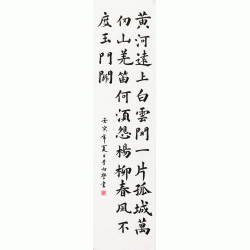 黃河遠上白雲間一片孤城萬
仞山羌笛何須怨楊柳春風不
度玉門關
壬寅年夏日